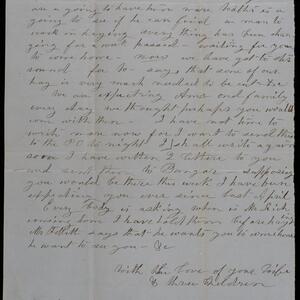 are a going to have him now Mother is a
going to see if he can find a man to
work in haying every thing has been
going for a week passed – waiting for you
to come home – now we have got to
for to say, that some of our
hay is very much needed to be cut
We are expecting your and family
every day we thought perhaps you would
come with them – I have not time to
write more now for I want to send this
to the PO to night I shall write again
soon I have written 2 letters to you
and sent them to Bangor – supposing
you would be there this week I have been
expecting you ever since last April
Every Body is asking when is Mr
coming home I have told them before haying
Mr says that he wants you to come home
he want to see you – &c
With the love of your Wife
& three Children